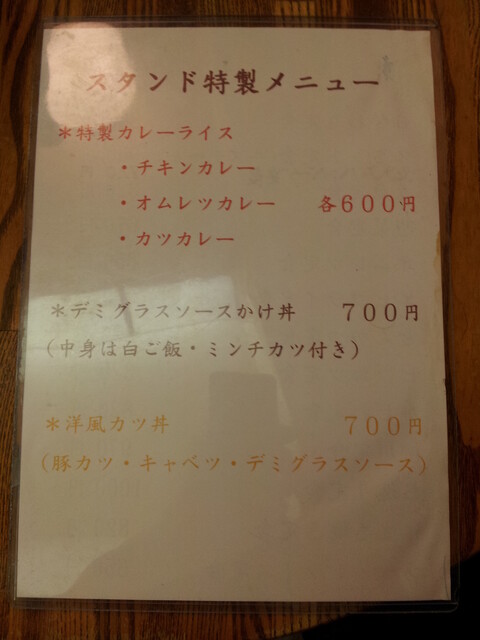 スタンド特製メニュー
＊特製カレーライス
・チキンカレー
・オムレツカレー　各６００円
・カツカレー
＊デミグラスソースかけ丼　７００円
（中身は白ご飯・ミンチカツ付き）
＊洋風カツ丼　７００円
（豚カツ・キャベツ・デミグラスソース）